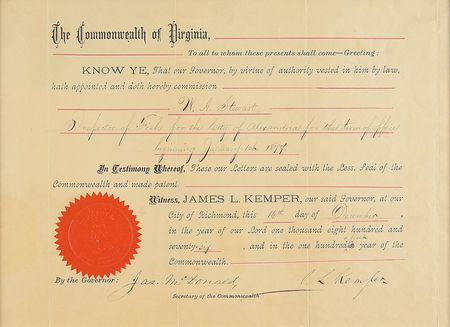 The Commonwealth of Virginia,
To all to whom these presents shall come—Greeting:
KNOW YE, That our Governor, by virtue of authority vested in him by law,
hath appointed and doth hereby commission
A. Stewart
Inspector of Fish for the City of Alexandria for the term of office
beginning January 1st 1877.
In Testimony Whereof, These our Letters are sealed with the Less. Seal of the
Commonwealth and made patent.
Witness, JAMES L. KEMPER, our said Governor, at our
City of Richmond, this 16th day of December,
in the year of our Lord one thousand eight hundred and
seventy-six, and in the one hundred & first year of the
Commonwealth.
By the Governor: Jas. McDonald, J L Kemper
Secretary of the Commonwealth